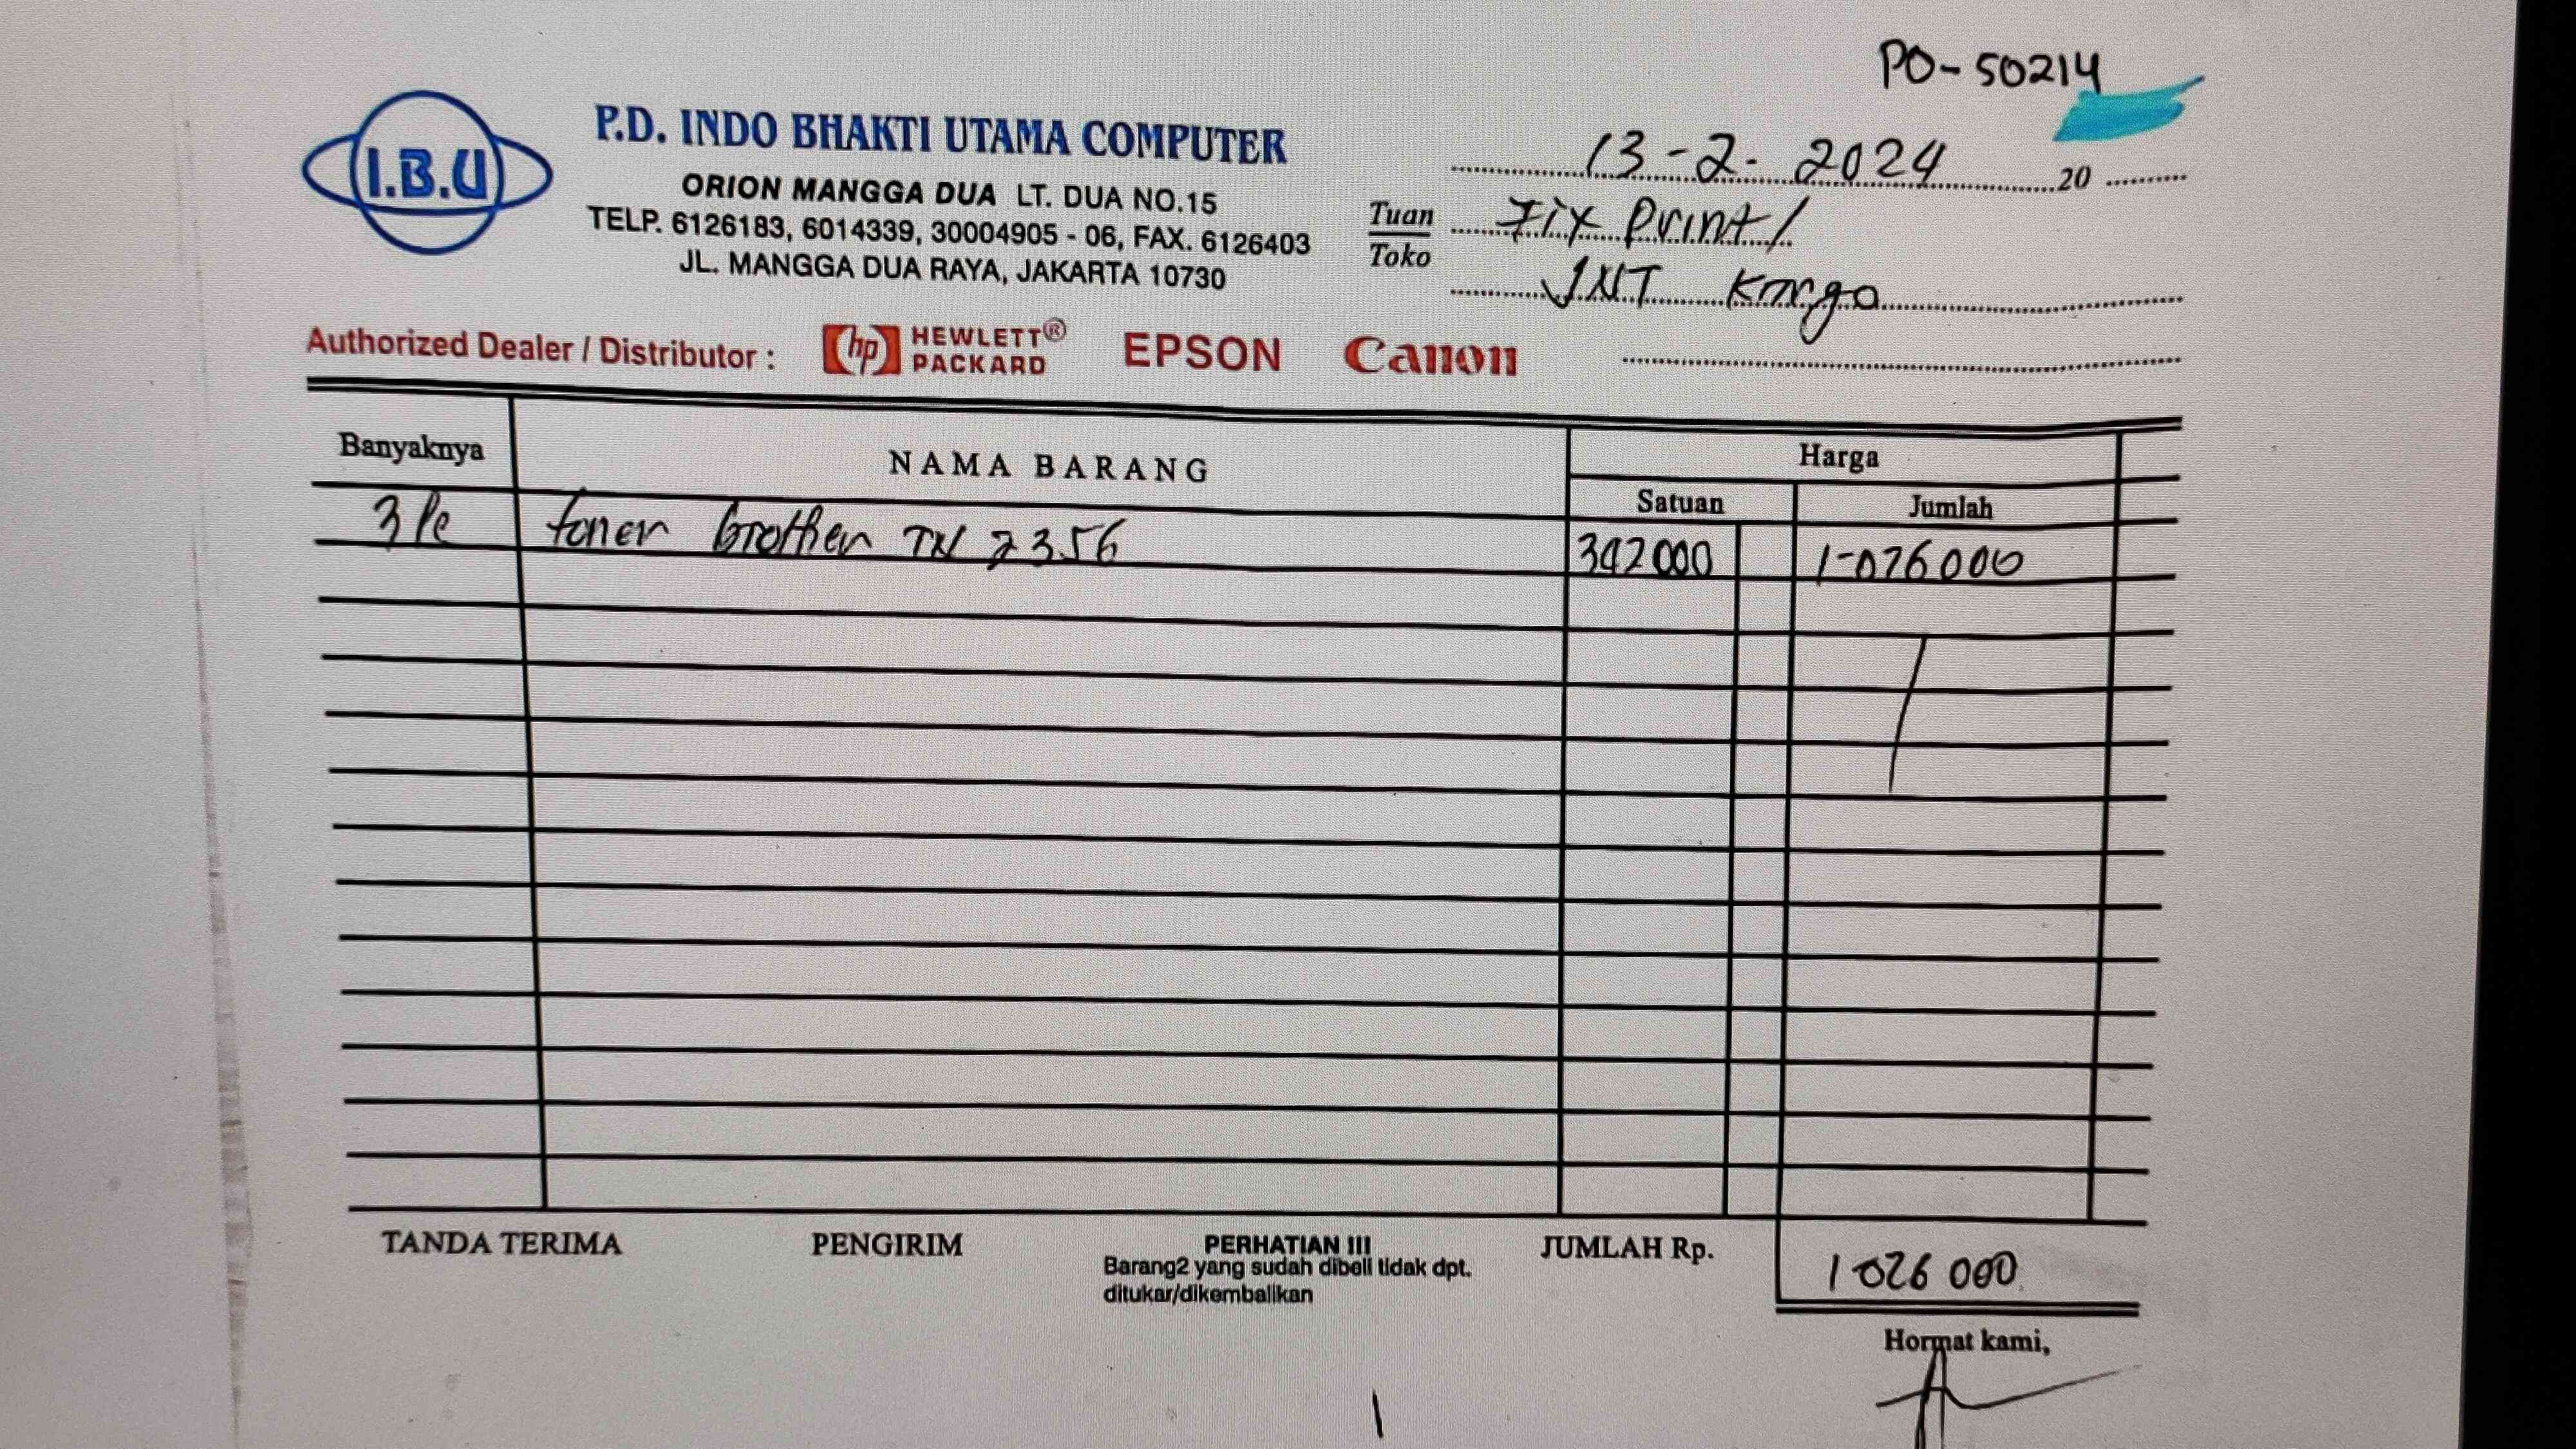 PO-50214
I.B.U
P.D. INDO BHAKTI UTAMA COMPUTER
ORION MANGGA DUA LT. DUA NO.15
TELP. 6126183, 6014339, 30004905 - 06, FAX. 6126403
JL. MANGGA DUA RAYA, JAKARTA 10730
13-2-2024 20
Tuan
Toko
Fix Print/
JNT Kargo
Authorized Dealer / Distributor : hp HEWLETT® PACKARD EPSON Canon
Banyaknya NAMA BARANG Harga
Satuan Jumlah
3 Pc toner brother TN 2356 342000 1-026000
TANDA TERIMA PENGIRIM PERHATIAN III JUMLAH Rp. 1 026 000
Barang2 yang sudah dibeli tidak dpt.
ditukar/dikembalikan
Hormat kami,